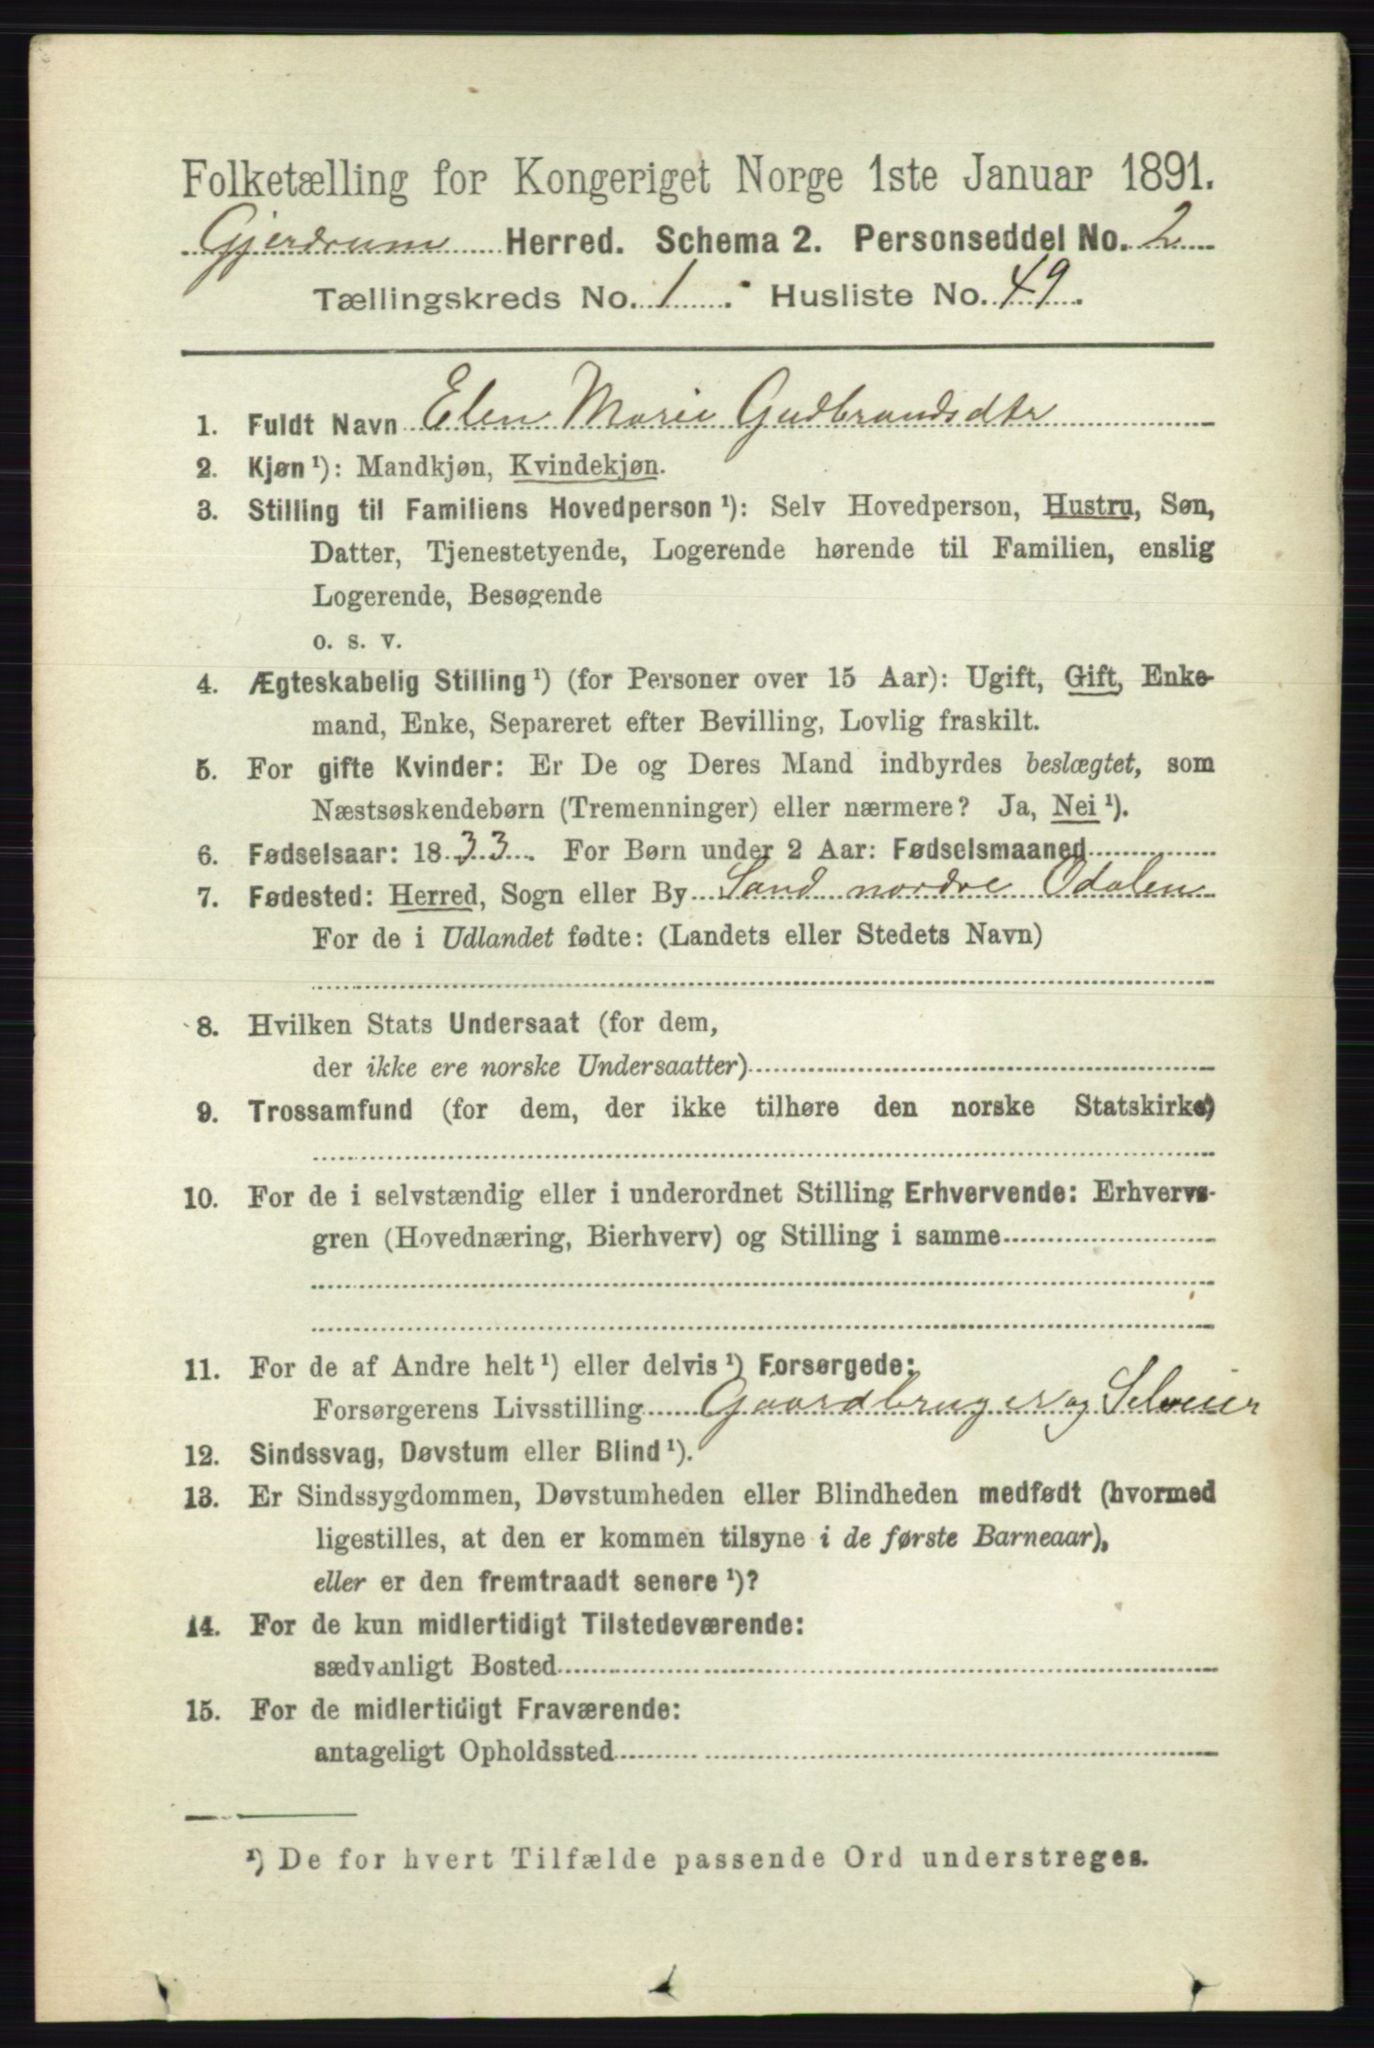 Folketælling for Kongeriget Norge 1ste Januar 1891.
Gjerdrum Herred. Schema 2. Personseddel No. 2
Tællingskreds No. 1. Husliste No. 49.
1. Fuldt Navn Elen Marie Gudbrandsdtr
2. Kjøn¹): Mandkjøn, Kvindekjøn.
3. Stilling til Familiens Hovedperson¹): Selv Hovedperson, Hustru, Søn,
Datter, Tjenestetyende, Logerende hørende til Familien, enslig
Logerende, Besøgende
o. s. v.
4. Ægteskabelig Stilling¹) (for Personer over 15 Aar): Ugift, Gift, Enke-
mand, Enke, Separeret efter Bevilling, Lovlig fraskilt.
5. For gifte Kvinder: Er De og Deres Mand indbyrdes beslægtet, som
Næstsøskendebørn (Tremenninger) eller nærmere? Ja, Nei¹).
6. Fødselsaar: 1833. For Børn under 2 Aar: Fødselsmaaned
7. Fødested: Herred, Sogn eller By Sand nordre Odalen
For de i Udlandet fødte: (Landets eller Stedets Navn)
8. Hvilken Stats Undersaat (for dem,
der ikke ere norske Undersaatter)
9. Trossamfund (for dem, der ikke tilhøre den norske Statskirke)
10. For de i selvstændig eller i underordnet Stilling Erhvervende: Erhvervs-
gren (Hovednæring, Bierhverv) og Stilling i samme
11. For de af Andre helt¹) eller delvis¹) Forsørgede:
Forsørgerens Livsstilling Gaardbruger og Selveier
12. Sindssvag, Døvstum eller Blind¹).
13. Er Sindssygdommen, Døvstumheden eller Blindheden medfødt (hvormed
ligestilles, at den er kommen tilsyne i de første Barneaar),
eller er den fremtraadt senere¹)?
14. For de kun midlertidigt Tilstedeværende:
sædvanligt Bosted
15. For de midlertidigt Fraværende:
antageligt Opholdssted
¹) De for hvert Tilfælde passende Ord understreges.